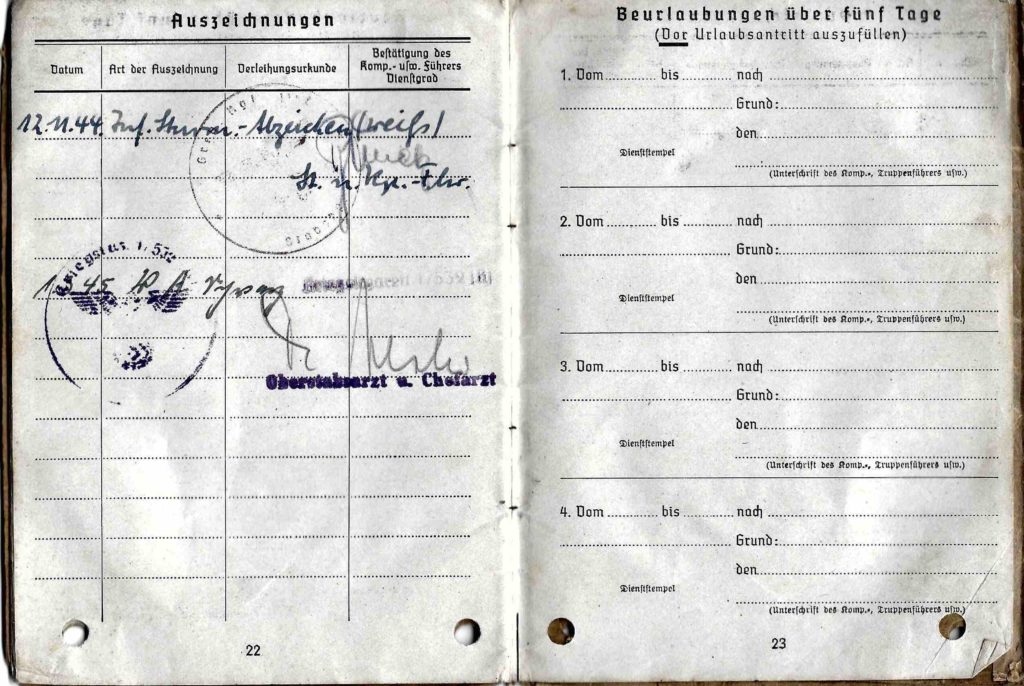 Auszeichnungen
Datum
Art der Auszeichnung
Verleihungsurkunde
Bestätigung des
Komp.- usw. Führers
Dienstgrad
12.11.44. Inf. Sturm-Abzeichen (weiß)
St. u. Kp.-Fhr.
1.3.45
Oberstabsarzt u. Chefarzt
22
Beurlaubungen über fünf Tage
(Vor Urlaubsantritt auszufüllen)
1. Vom bis nach
Grund:
den
Dienststempel
(Unterschrift des Komp.-, Truppenführers usw.)
2. Vom bis nach
Grund:
den
Dienststempel
(Unterschrift des Komp.-, Truppenführers usw.)
3. Vom bis nach
Grund:
den
Dienststempel
(Unterschrift des Komp.-, Truppenführers usw.)
4. Vom bis nach
Grund:
den
Dienststempel
(Unterschrift des Komp.-, Truppenführers usw.)
23